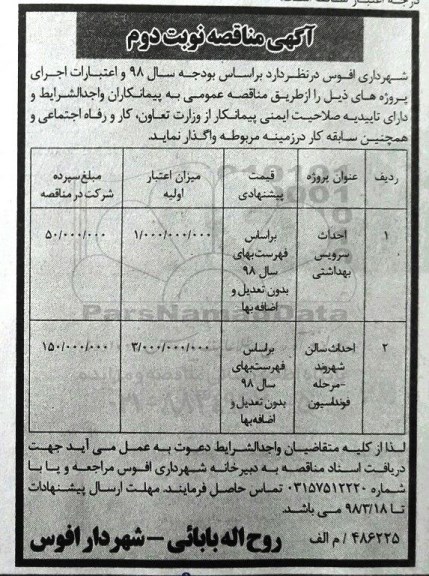 آگهی مناقصه نوبت دوم
شهرداری افوس درنظردارد براساس بودجه سال ۹۸ و اعتبارات اجرای
پروژه های ذیل را ازطریق مناقصه عمومی به پیمانکاران واجدالشرایط و
دارای تاییدیه صلاحیت ایمنی پیمانکار از وزارت تعاون، کار و رفاه اجتماعی و
همچنین سابقه کار درزمینه مربوطه واگذار نماید.
ردیف عنوان پروژه قیمت پیشنهادی میزان اعتبار اولیه مبلغ سپرده شرکت در مناقصه
۱ احداث سرویس بهداشتی براساس فهرست‌بهای سال ۹۸ بدون تعدیل و اضافه بها ۱/۰۰۰/۰۰۰/۰۰۰ ۵۰/۰۰۰/۰۰۰
۲ احداث سالن شهروند -مرحله فونداسیون براساس فهرست‌بهای سال ۹۸ بدون تعدیل و اضافه‌بها ۳/۰۰۰/۰۰۰/۰۰۰ ۱۵۰/۰۰۰/۰۰۰
لذا از کلیه متقاضیان واجدالشرایط دعوت به عمل می آید جهت
دریافت اسناد مناقصه به دبیرخانه شهرداری افوس مراجعه و یا با
شماره ۰۳۱۵۷۵۱۲۲۲۰ تماس حاصل فرمایند. مهلت ارسال پیشنهادات
تا ۹۸/۳/۱۸ می باشد.
۴۸۶۲۲۵ / م الف
روح اله بابائی – شهردار افوس
ParsNamadData